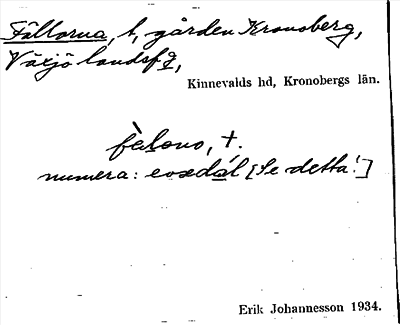 Fällorna, t, gården Kronoberg,
Växjö landsfg,
Kinnevalds hd, Kronobergs län.
fèlono, †.
numera: evedál [Se detta!]
Erik Johannesson 1934.